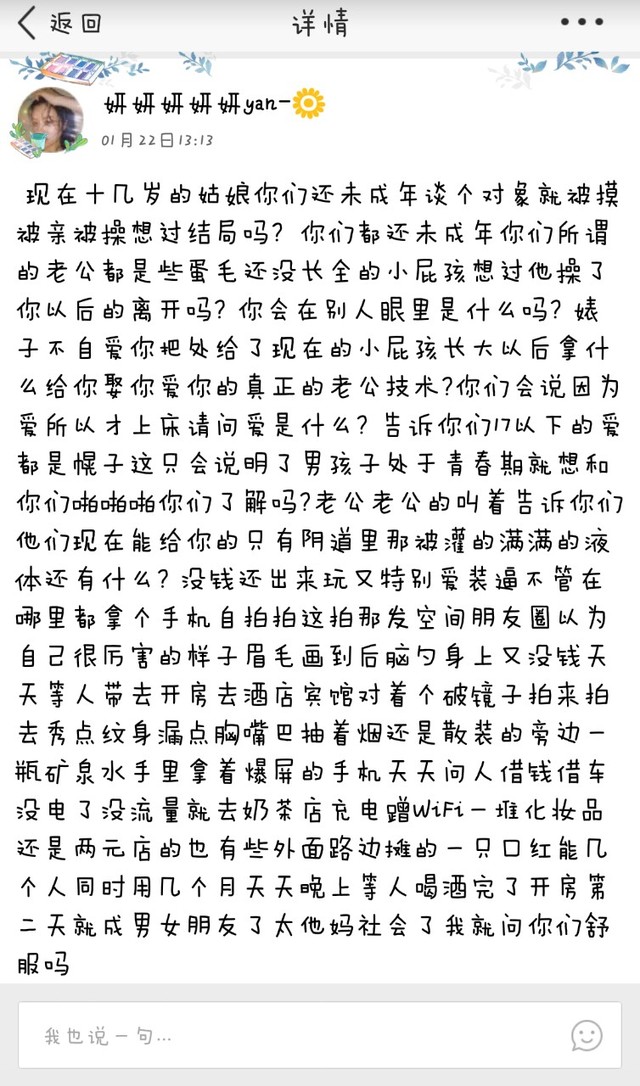 返回
详情
妍妍妍妍妍yan-🌻
01月22日13:13
现在十几岁的姑娘你们还未成年谈个对象就被摸
被亲被操想过结局吗？你们都还未成年你们所谓
的老公都是些蛋毛还没长全的小屁孩想过他操了
你以后的离开吗？你会在别人眼里是什么吗？婊
子不自爱你把处给了现在的小屁孩长大以后拿什
么给你娶你爱你的真正的老公技术?你们会说因为
爱所以才上床请问爱是什么？告诉你们17以下的爱
都是幌子这只会说明了男孩子处于青春期就想和
你们啪啪啪你们了解吗?老公老公的叫着告诉你们
他们现在能给你的只有阴道里那被灌的满满的液
体还有什么？没钱还出来玩又特别爱装逼不管在
哪里都拿个手机自拍拍这拍那发空间朋友圈以为
自己很厉害的样子眉毛画到后脑勺身上又没钱天
天等人带去开房去酒店宾馆对着个破镜子拍来拍
去秀点纹身漏点胸嘴巴抽着烟还是散装的旁边一
瓶矿泉水手里拿着爆屏的手机天天问人借钱借车
没电了没流量就去奶茶店充电蹭WiFi一堆化妆品
还是两元店的也有些外面路边摊的一只口红能几
个人同时用几个月天天晚上等人喝酒完了开房第
二天就成男女朋友了太他妈社会了我就问你们舒
服吗
我也说一句...